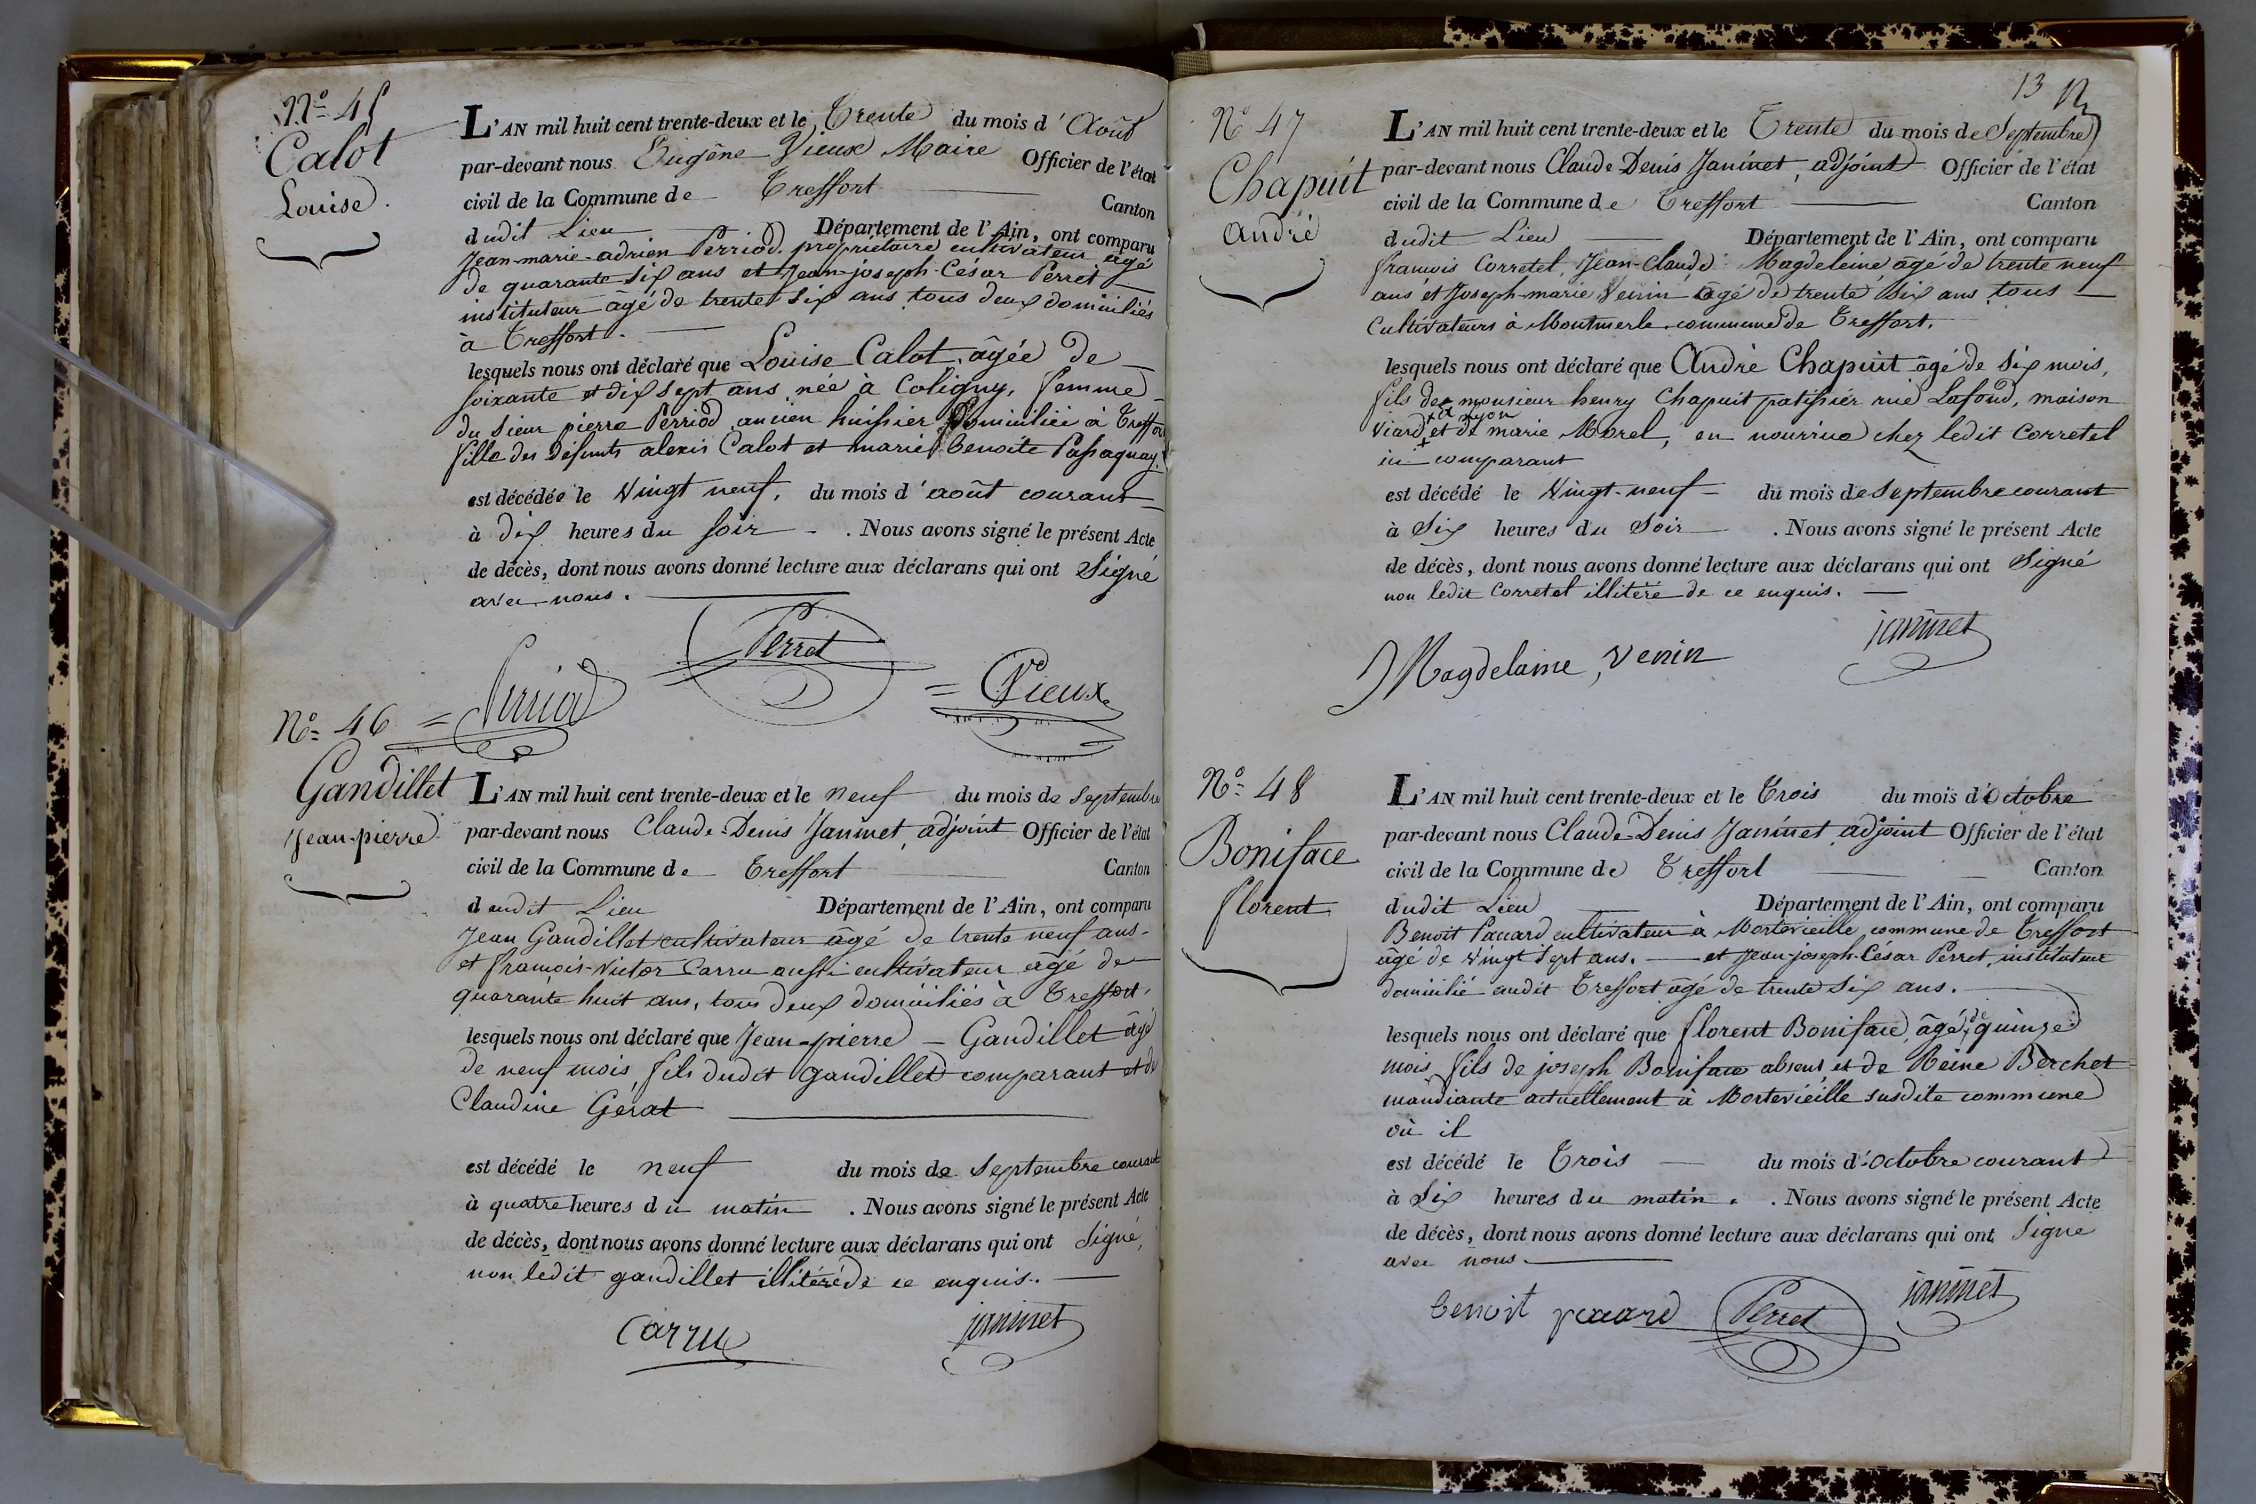 N° 45
Calot
Louise
L'AN mil huit cent trente-deux et le Trente du mois d'Août
par-devant nous Eugène Vieux Maire Officier de l'état
civil de la Commune de Treffort Canton
dudit Lieu Département de l'Ain, ont comparu
Jean-marie-adrien Perriod propriétaire cultivateur âgé
de quarante six ans et Jean-joseph-César Perret
instituteur âgé de trente six ans tous deux domiciliés
à Treffort.
lesquels nous ont déclaré que Louise Calot, âgée de
soixante et dix sept ans née à Coligny, femme
du sieur pierre Perriod ancien huissier domiciliée à Treffort
fille des défunts alexis Calot et marie benoite Passaquay,
est décédée le vingt neuf, du mois d'août courant
à dix heures du soir. Nous avons signé le présent Acte
de décès, dont nous avons donné lecture aux déclarans qui ont signé
avec nous.
Perret
Perriod
Vieux
N° 46
Gandillet
Jean-pierre
L'AN mil huit cent trente-deux et le neuf du mois de septembre
par-devant nous Claude-Denis Janinet, adjoint Officier de l'état
civil de la Commune de Treffort Canton
dudit Lieu Département de l'Ain, ont comparu
Jean Gandillet cultivateur âgé de trente neuf ans
et françois-victor Carru aussi cultivateur âgé de
quarante huit ans, tous deux domiciliés à Treffort,
lesquels nous ont déclaré que Jean-pierre Gandillet âgé
de neuf mois, fils dudit gandillet comparant et de
Claudine Gerat
est décédé le neuf du mois de septembre courant
à quatre heures du matin. Nous avons signé le présent Acte
de décès, dont nous avons donné lecture aux déclarans qui ont signé,
non ledit gandillet illitéré de ce enquis.
Carru
janinet
13
N° 47
Chapuit
André
L'AN mil huit cent trente-deux et le Trente du mois de septembre
par-devant nous Claude-Denis Janinet, adjoint Officier de l'état
civil de la Commune de Treffort Canton
dudit Lieu Département de l'Ain, ont comparu
françois Corretel, Jean-Claude Magdeleine âgé de trente neuf
ans et Joseph-marie Venin âgé de trente six ans tous
Cultivateurs à Montmerle commune de Treffort.
lesquels nous ont déclaré que André Chapuit âgé de six mois,
fils de monsieur henry Chapuit patissier rue Lafond, maison
viard + à Lyon et de marie Morel, en nourrice chez ledit Corretel
ici comparant
est décédé le vingt-neuf du mois de septembre courant
à six heures du soir. Nous avons signé le présent Acte
de décès, dont nous avons donné lecture aux déclarans qui ont signé
non ledit Corretel illitéré de ce enquis.
janinet
Magdelaine, venin
N° 48
Boniface
florent
L'AN mil huit cent trente-deux et le Trois du mois d'Octobre
par-devant nous Claude-Denis Janinet adjoint Officier de l'état
civil de la Commune de Treffort Canton
dudit Lieu Département de l'Ain, ont comparu
Benoit Paccard cultivateur à Mortevieille commune de Treffort
âgé de vingt sept ans. et Jean-joseph-César Perret, instituteur
domicilié audit Treffort âgé de trente six ans.
lesquels nous ont déclaré que florent Boniface, âgé de quinze
mois, fils de joseph Boniface absent et de Reine Berchet
mandiante actuellement à Mortevieille susdite commune
où il
est décédé le Trois du mois d'Octobre courant
à six heures du matin. Nous avons signé le présent Acte
de décès, dont nous avons donné lecture aux déclarans qui ont signé
avec nous.
benoit paccard
Perret
janinet